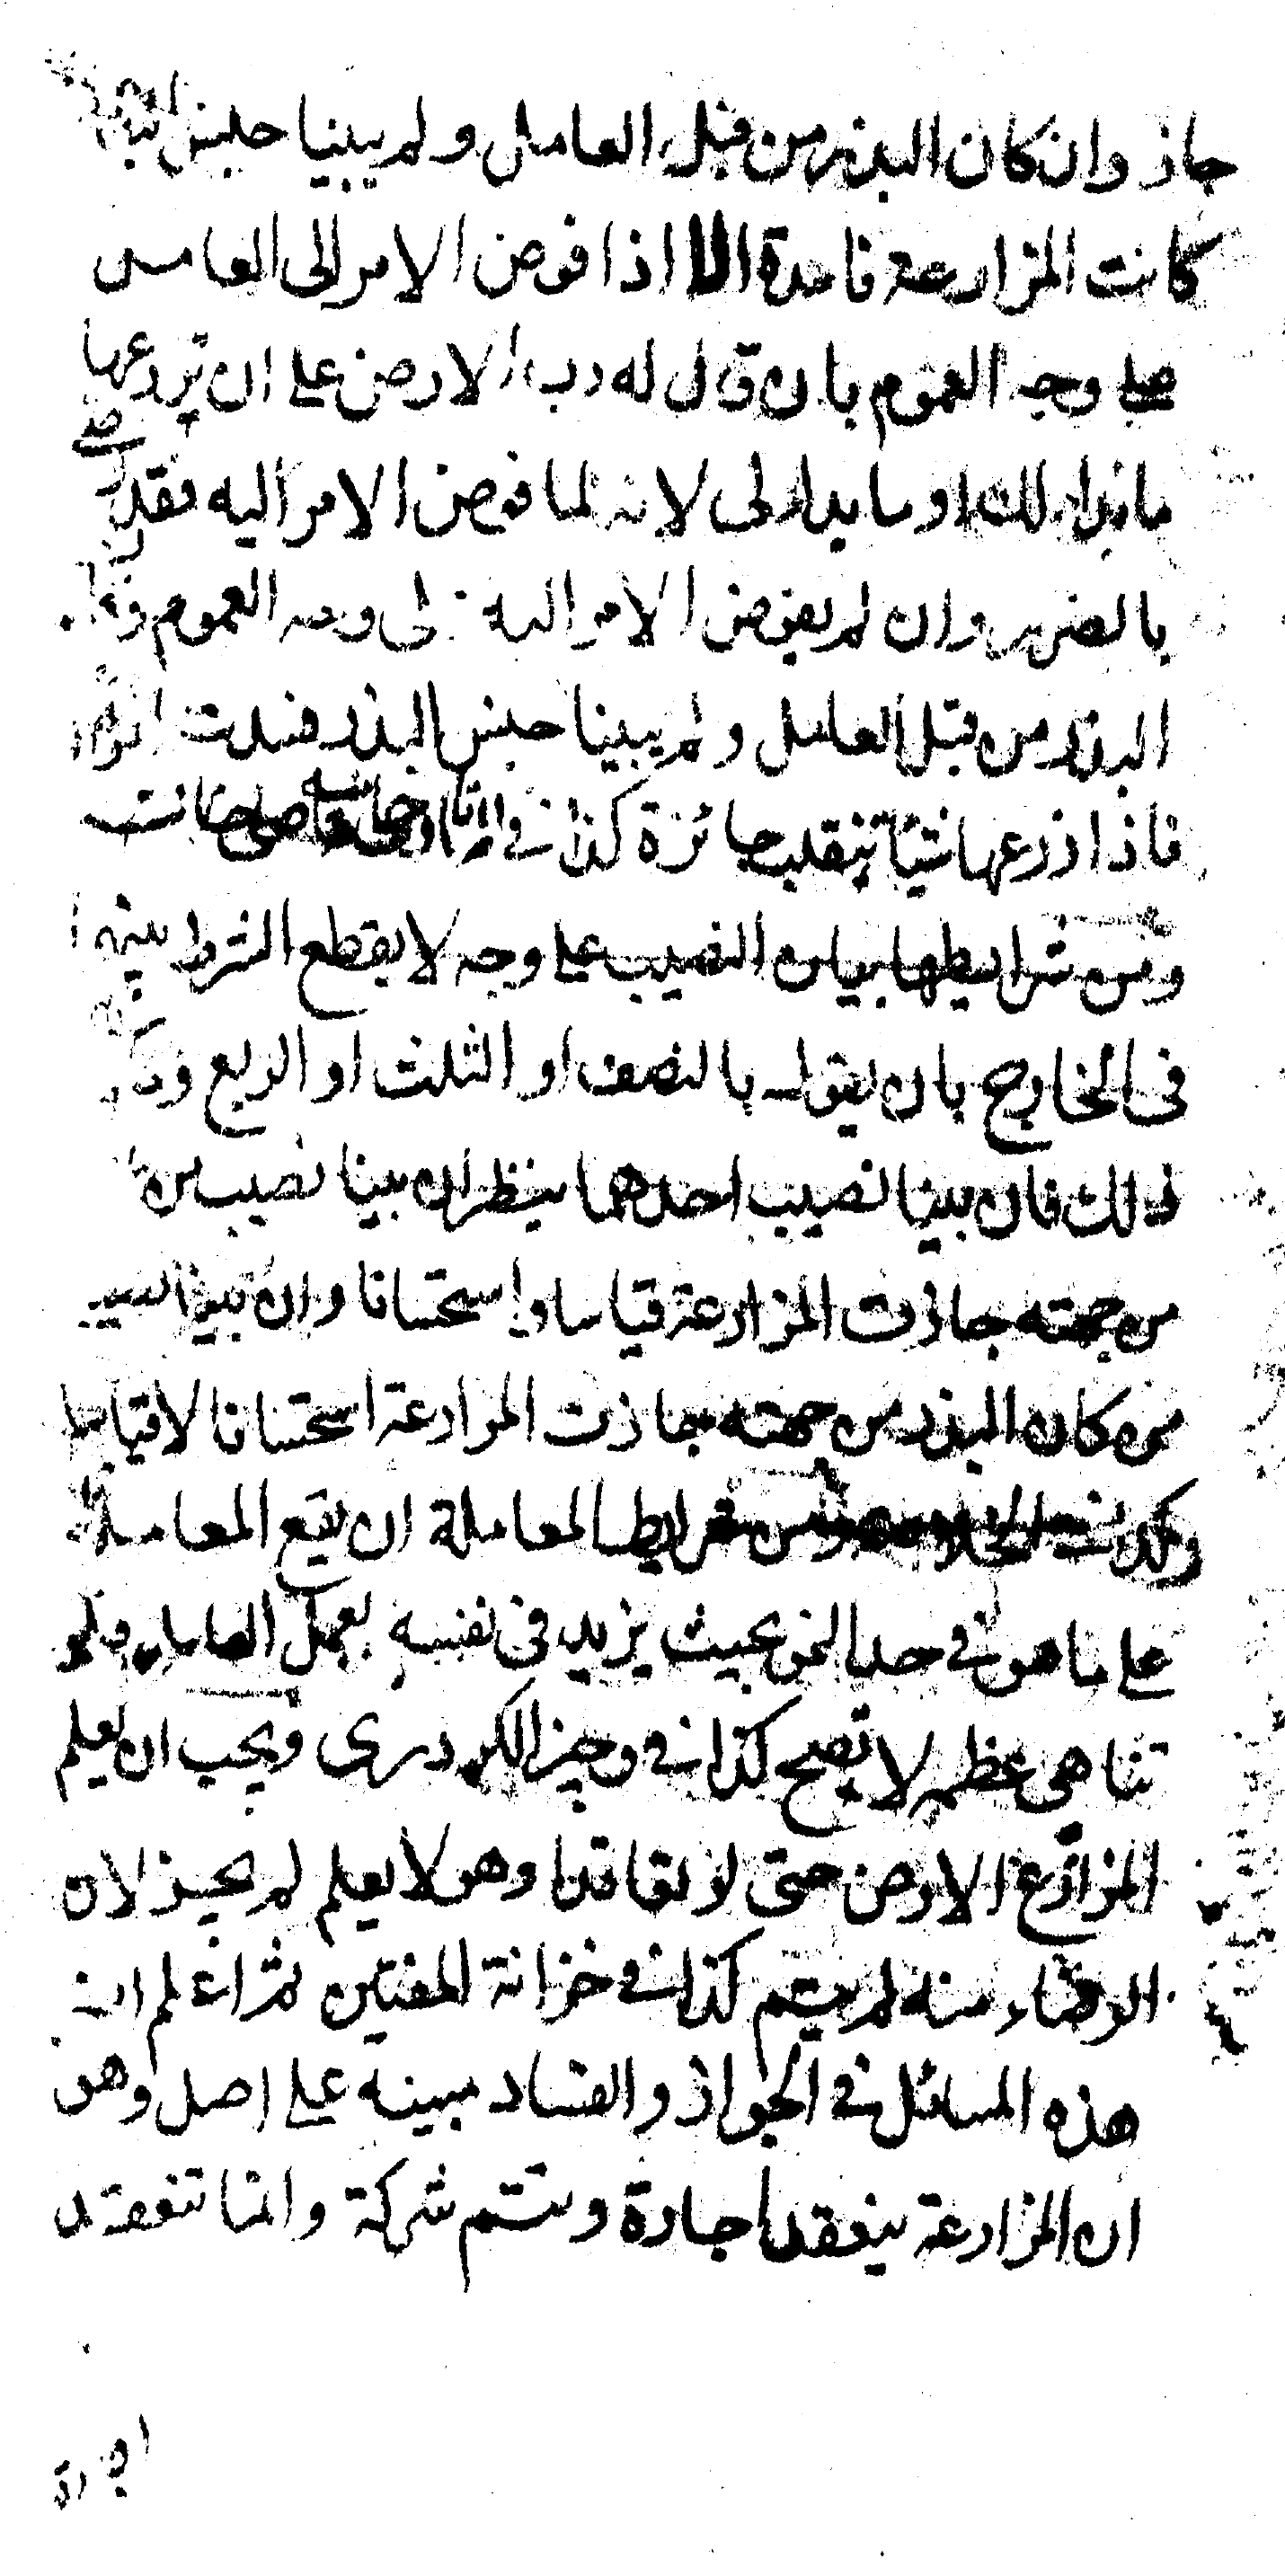 جاز وان كان البذر من قبل العامل ولم يبينا جنس البذر
كانت المزارعة فاسدة الا اذا فوض الامر الى العامل
على وجه العموم بان قال له رب الارض على ان تزرعها
ما بدا لك او ما بدا لى لانه لما فوض الامر اليه فقد رضى
بالضرر وان لم يفوض الامر اليه على وجه العموم وكان
البذر من قبل العامل ولم يبينا جنس البذر فسدت المزارعة
فاذا زرعها شيئا تنقلب جائزة كذا فى
ومن شرايطها بيان النصيب على وجه لا يقطع الشرط بينهما
فى الخارج بان يقول بالنصف او الثلث او الربع ونحو
ذلك فان بينا نصيب احدهما ينظر ان بينا نصيب من
من جهته جازت المزارعة قياسا واستحسانا وان بينا نصيب
من كان البذر من جهته جازت المزارعة استحسانا لا قياسا
وكذا فى الخلاصة ومن شرايط المعاملة ان يقع المعاملة
على ما هو فى حد النمو بحيث يزيد فى نفسه بعمل العامل فلو
تناهى عظمه لا تصح كذا فى وجيز الكردرى ويجب ان يعلم
المزارع الارض حتى لو تعاقدا وهو لا يعلم لم يجيز لان
الرضاء منه لم يتم كذا فى خزانة المفتين ثم اعلم ان
هذه المسائل فى الجواز والفساد مبينه على اصل وهو
ان المزارعة ينعقد اجارة وتتم شركة وانما تنعقد
اجارة